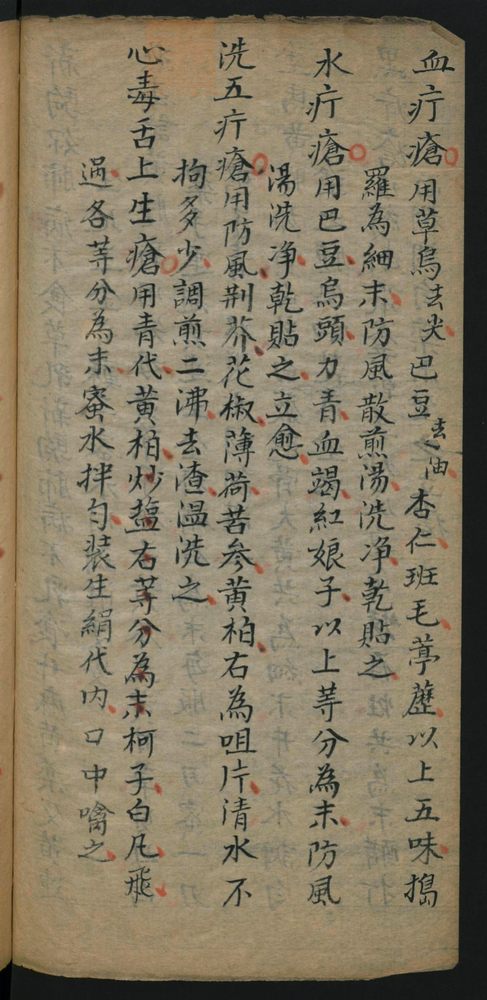 血疔瘡用草烏去尖巴豆去油杏仁班毛葶藶以上五味搗
羅為細末防風散煎湯洗净乾貼之
水疔瘡用巴豆烏頭刀青血竭紅娘子以上等分為末防風
湯洗净乾貼之立愈
洗五疔瘡用防風荆芥花椒薄荷苦参黄柏右為咀片清水不
拘多少調煎二沸去渣温洗之
心毒舌上生瘡用青代黄柏炒塩右等分為末柯子白凡飛
過各等分為末蜜水拌匀裝生絹代内口中噙之